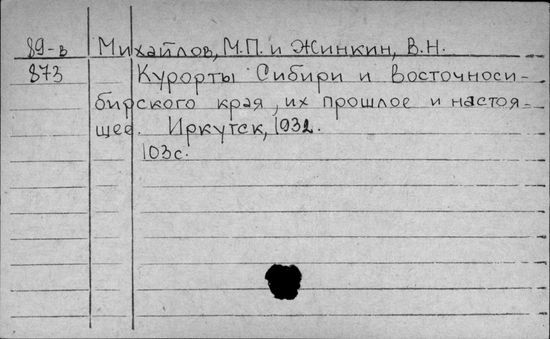 89-в Михайлов, М.П. и Жинкин, В.Н.
873 Курорты Сибири и Восточноси-
бирского края, их прошлое и настоя-
щее. Иркутск, 1932.
103с.